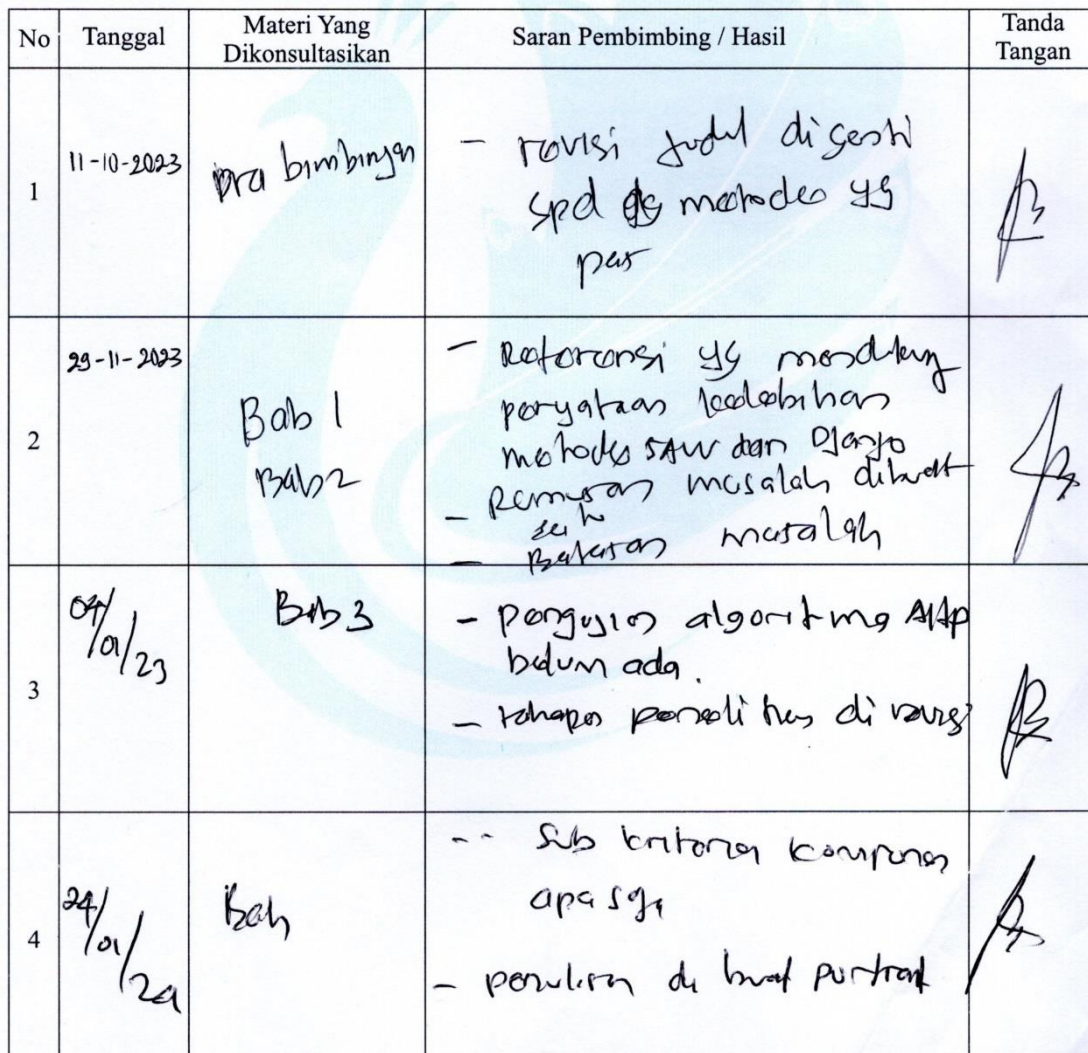 No Tanggal Materi Yang Dikonsultasikan Saran Pembimbing / Hasil Tanda Tangan
1 11-10-2023 pra bimbingan
- revisi judul diganti
spd dg metode yg
pas
2 29-11-2023 Bab 1
Bab 2
- Referensi yg mendukung
pernyataan kelebihan
metode SAW dan Django
- Rumusan masalah dibuat
- Batasan masalah
3 04/01/23 Bab 3
- pengujian algoritma AHP
belum ada.
- tahapan penelitian di revisi
4 24/01/24 Bab
-- Sub kriteria komponen
apa saja
- penulisan di buat